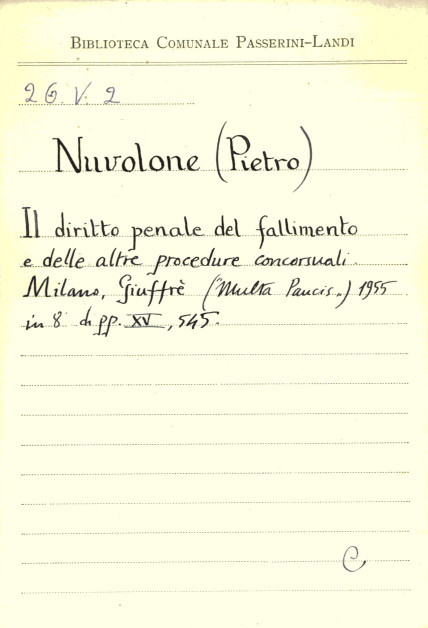 BIBLIOTECA COMUNALE PASSERINI-LANDI
2G. V. 2
Nuvolone (Pietro)
Il diritto penale del fallimento
e delle altre procedure concorsuali.
Milano, Giuffrè ("Multa Paucis„) 1955
in 8° di pp. XV, 545.
C